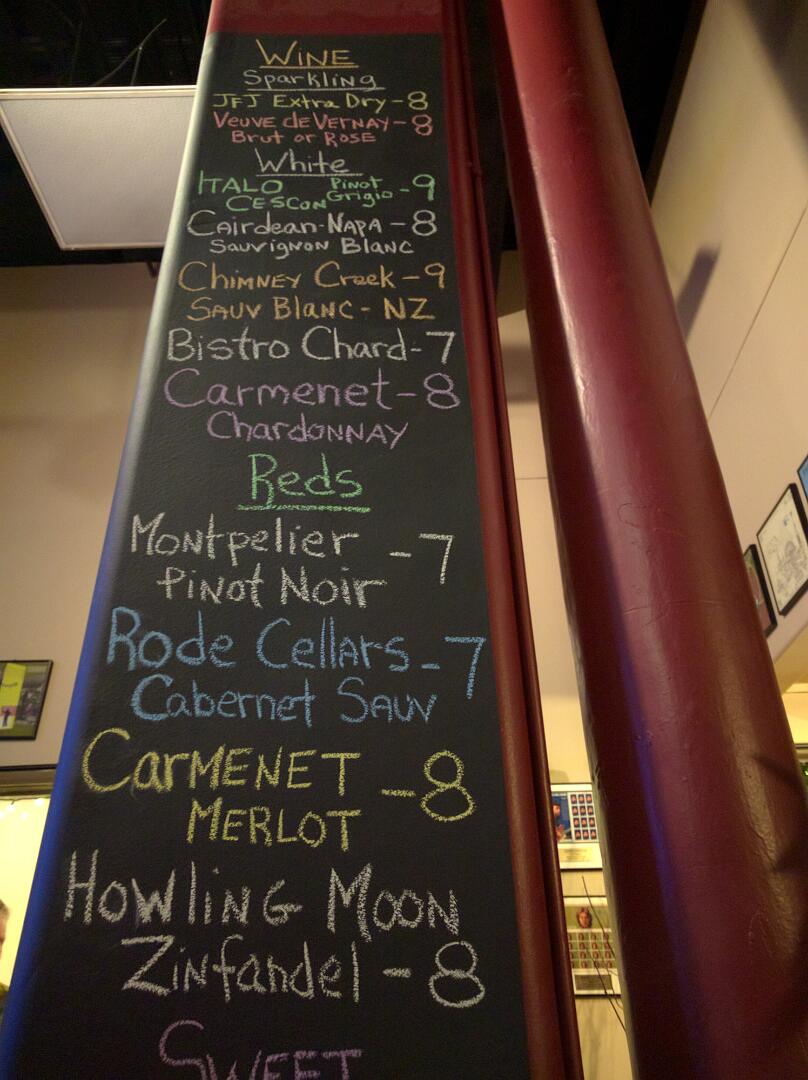 WINE
Sparkling
JFJ Extra Dry-8
VEUVE dE VERNAY-8
BRUT or ROSE
White
ITALO Pinot Grigio -9
CESCON
Cairdean-NAPA -8
SAUVIGNON BLANC
CHIMNEY Creek-9
SAUV BLANC- NZ
Bistro Chard-7
Carmenet-8
ChardoNNAY
Reds
Montpelier -7
PINOT NOIR
Rode CellARS-7
Cabernet SAUV
CARMENET -8
MERLOT
HOWLING MOON
ZINfandel -8
SWEET